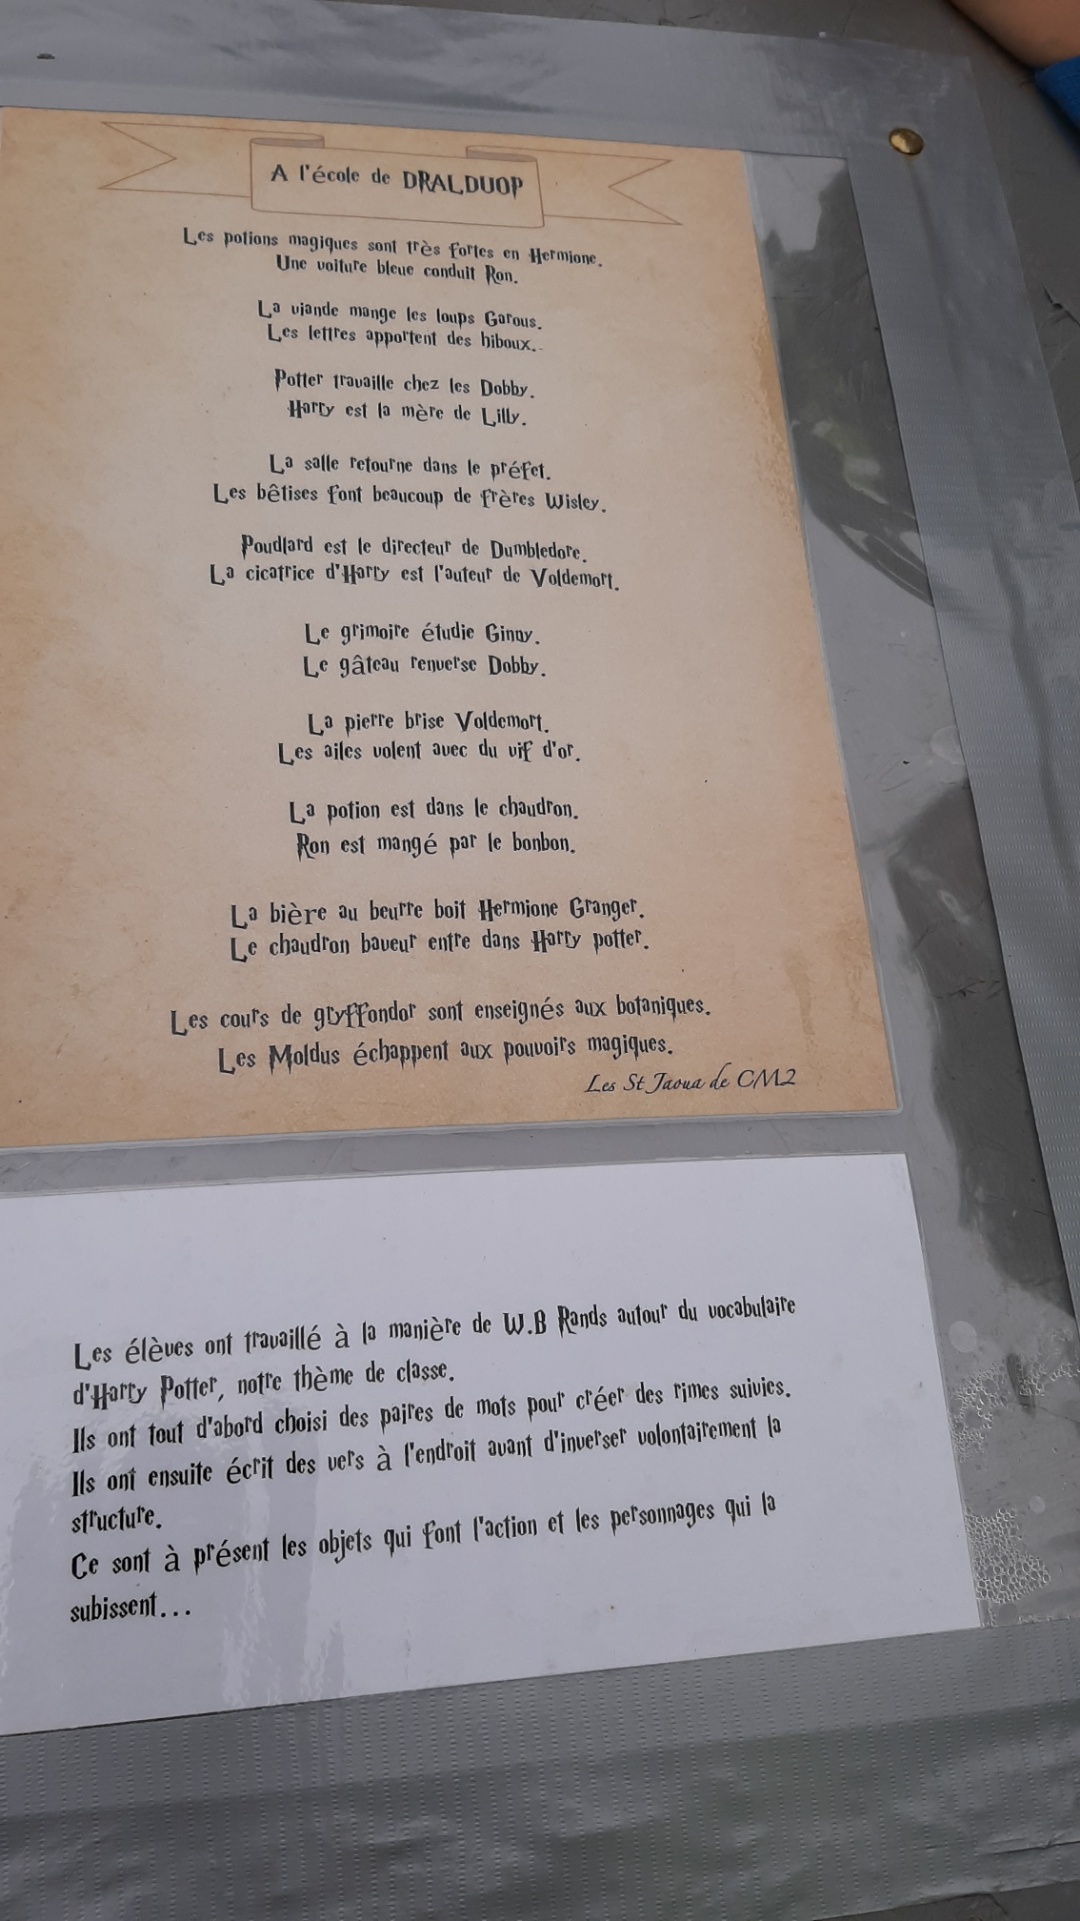 A l'école de DRALDUOP
Les potions magiques sont très fortes en Hermione.
Une voiture bleue conduit Ron.
La viande mange les loups Garous.
Les lettres apportent des hiboux.
Potter travaille chez les Dobby.
Harry est la mère de Lilly.
La salle retourne dans le préfet.
Les bêtises font beaucoup de frères Wisley.
Poudlard est le directeur de Dumbledore.
La cicatrice d'Harry est l'auteur de Voldemort.
Le grimoire étudie Ginny.
Le gâteau renverse Dobby.
La pierre brise Voldemort.
Les ailes volent avec du vif d'or.
La potion est dans le chaudron.
Ron est mangé par le bonbon.
La bière au beurre boit Hermione Granger.
Le chaudron baveur entre dans Harry potter.
Les cours de gryffondor sont enseignés aux botaniques.
Les Moldus échappent aux pouvoirs magiques.
Les St Jaoua de CM2
Les élèves ont travaillé à la manière de W.B Rands autour du vocabulaire
d'Harry Potter, notre thème de classe.
Ils ont tout d'abord choisi des paires de mots pour créer des rimes suivies.
Ils ont ensuite écrit des vers à l'endroit avant d'inverser volontairement la
structure.
Ce sont à présent les objets qui font l'action et les personnages qui la
subissent...